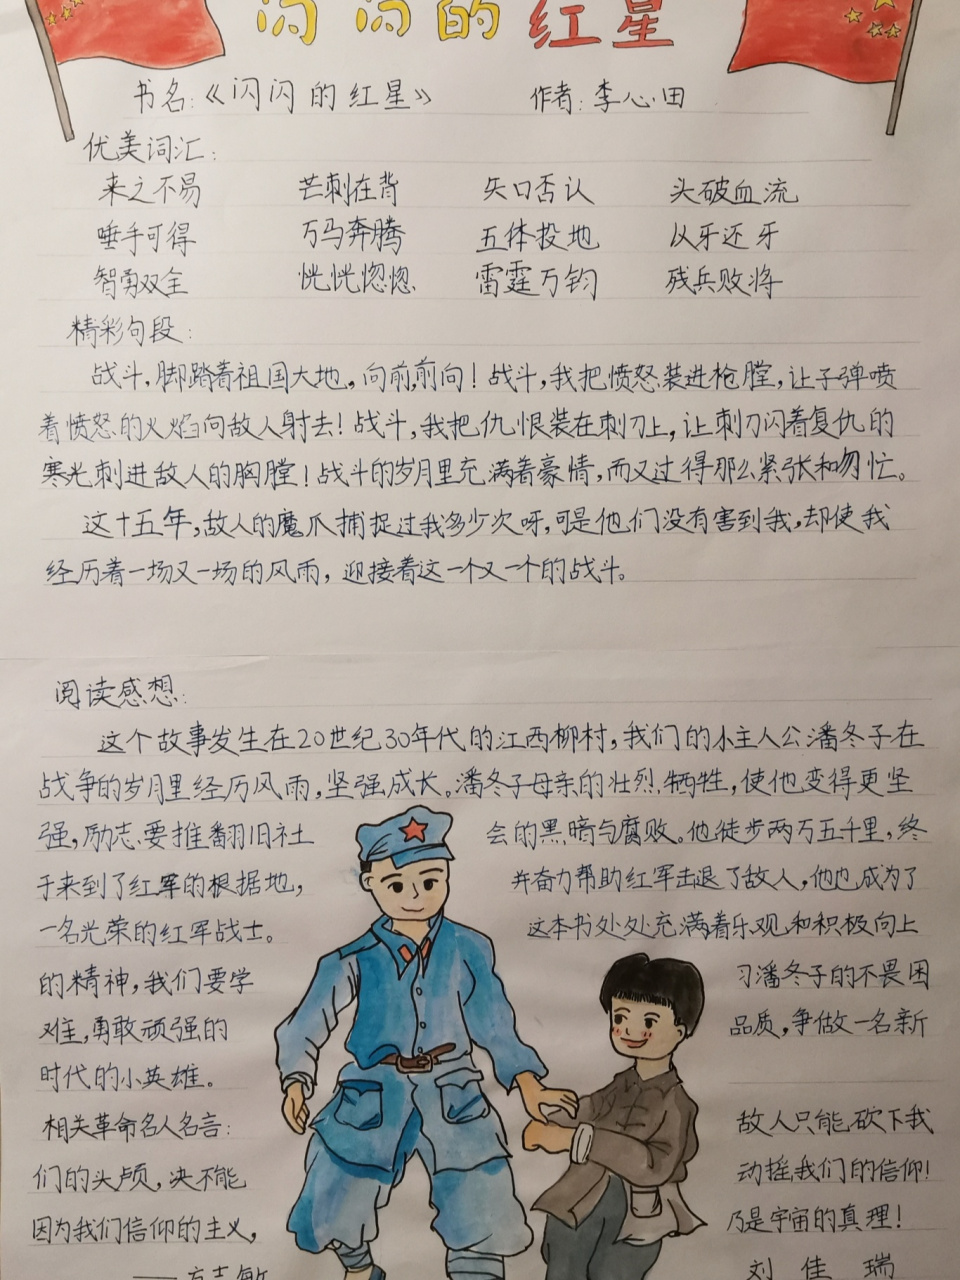 闪闪的红星
书名:《闪闪的红星》 作者:李心田
优美词汇:
来之不易 芒刺在背 矢口否认 头破血流
唾手可得 万马奔腾 五体投地 以牙还牙
智勇双全 恍恍惚惚 雷霆万钧 残兵败将
精彩句段:
战斗,脚踏着祖国大地,向前,前向!战斗,我把愤怒装进枪膛,让子弹喷
着愤怒的火焰向敌人射去!战斗,我把仇恨装在刺刀上,让刺刀闪着复仇的
寒光刺进敌人的胸膛!战斗的岁月里充满着豪情,而又过得那么紧张和匆忙。
这十五年,敌人的魔爪捕捉过我多少次呀,可是他们没有害到我,却使我
经历着一场又一场的风雨,迎接着这一个又一个的战斗。
阅读感想:
这个故事发生在20世纪30年代的江西柳村,我们的小主人公潘冬子在
战争的岁月里经历风雨,坚强成长。潘冬子母亲的壮烈牺牲,使他变得更坚
强,励志要推翻旧社会的黑暗与腐败。他徒步两万五千里,终
于来到了红军的根据地,并奋力帮助红军击退了敌人,他也成为了
一名光荣的红军战士。这本书处处充满着乐观和积极向上
的精神,我们要学习潘冬子的不畏困
难,勇敢顽强的品质,争做一名新
时代的小英雄。
相关革命名人名言: 敌人只能砍下我
们的头颅,决不能动摇我们的信仰!
因为我们信仰的主义,乃是宇宙的真理!
——方志敏 刘佳瑞